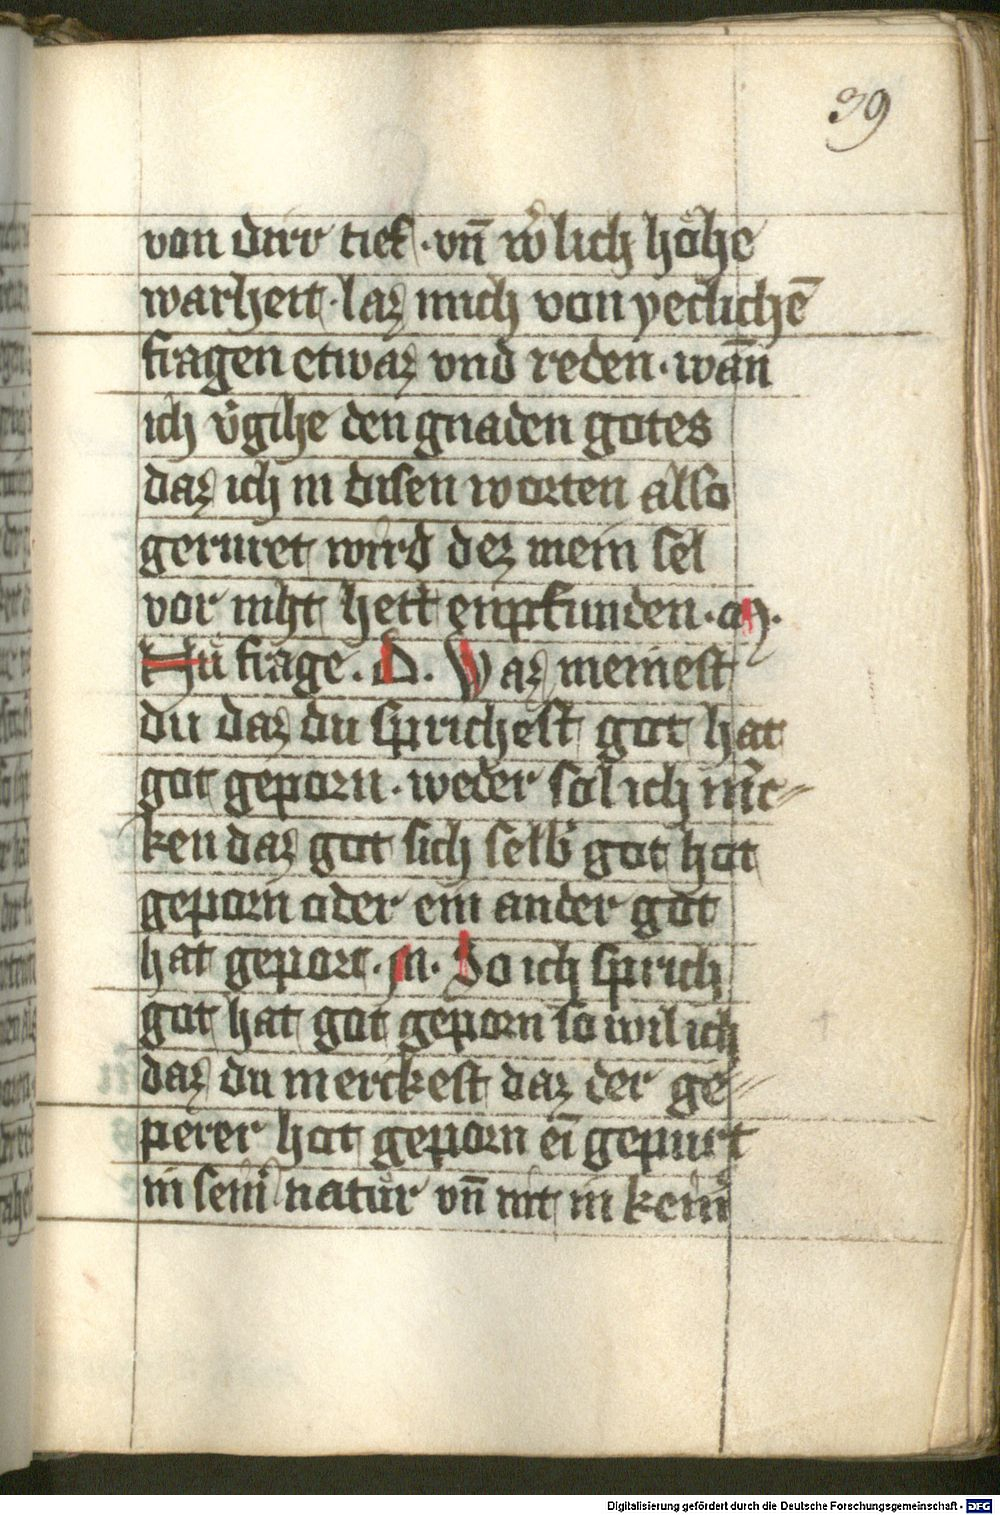 39
von dirr tief · vn̄ w̾lich hohe
warheit · laz mich von yeclichē
fragen etwaz vnd reden · wān
ich v̾gihe den gnaden gotes
daz ich in disen worten also
geruret wird dez mein sel
vor niht hett enpfunden · M ·
Nu frage · D · Waz meinest
du daz du sprichest got hat
got geporn · weder sol ich m̾c⸗
ken daz got sich selb̾ got hat
geporn oder ein ander got
hat geport · M · Do ich sprich
got hat got geporn so wil ich
daz du merckest daz der ge⸗
perer hat geporn eī gepurt
in sein̾ natur vn̄ nit in kein̾
Digitalisierung gefördert durch die Deutsche Forschungsgemeinschaft - DFG